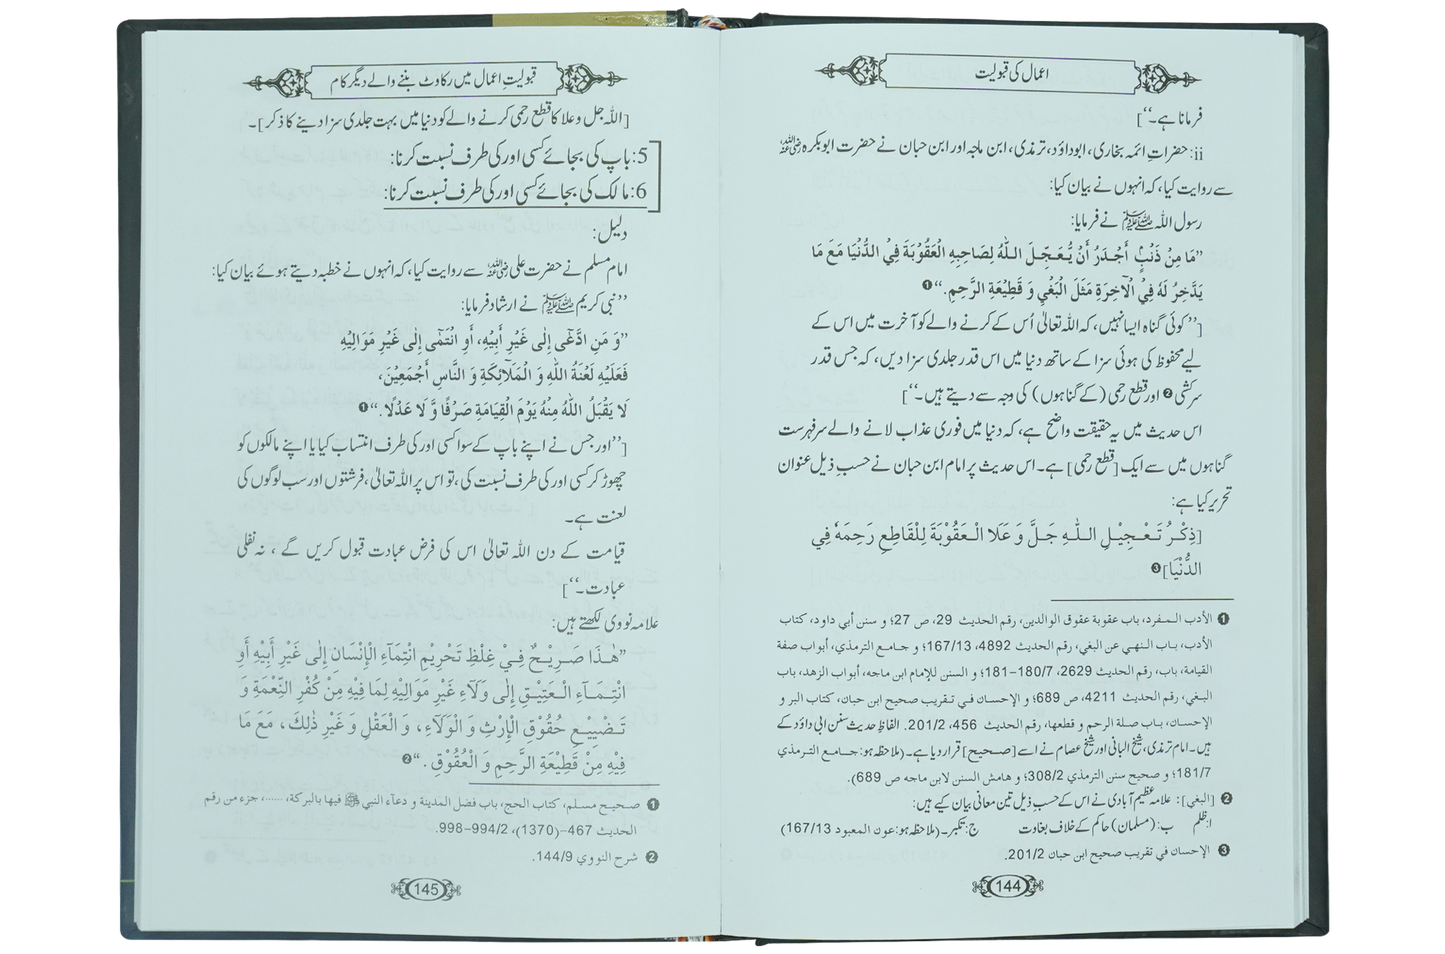 اعمال کی قبولیت
فرمانا ہے۔‘‘]
ii: حضراتِ ائمہ بخاری، ابوداؤد، ترمذی، ابن ماجہ اور ابن حبان نے حضرت ابوبکرہ رضی اللہ عنہ
سے روایت کیا، کہ انہوں نے بیان کیا:
رسول اللہ ﷺ نے فرمایا:
”مَا مِنْ ذَنْبٍ أَجْدَرُ أَنْ يُّعَجِّلَ اللّٰهُ لِصَاحِبِهِ الْعَقُوْبَةَ فِيْ الدُّنْيَا مَعَ مَا
يَدَّخِرُ لَهٗ فِيْ الْآخِرَةِ مَثَلَ الْبَغْيِ وَ قَطِيْعَةِ الرَّحِمِ.“ ❶
[’’کوئی گناہ ایسا نہیں، کہ اللہ تعالیٰ اُس کے کرنے والے کو آخرت میں اس کے
لیے محفوظ کی ہوئی سزا کے ساتھ دنیا میں اس قدر جلدی سزا دیں، کہ جس قدر
سرکشی ❷ اور قطع رحمی (کے گناہوں) کی وجہ سے دیتے ہیں۔‘‘]
اس حدیث میں یہ حقیقت واضح ہے، کہ دنیا میں فوری عذاب لانے والے سرفہرست
گناہوں میں سے ایک [قطع رحمی] ہے۔ اس حدیث پر امام ابن حبان نے حسبِ ذیل عنوان
تحریر کیا ہے:
[ذِكْرُ تَعْجِيْلِ اللّٰهِ جَلَّ وَ عَلَا الْعَقُوْبَةَ لِلْقَاطِعِ رَحِمَهٗ فِي
الدُّنْيَا] ❸
❶ الأدب المفرد، باب عقوبة عقوق الوالدين، رقم الحديث 29، ص 27؛ و سنن أبي داود، كتاب
الأدب، باب النهي عن البغي، رقم الحديث 4892، 167/13؛ و جامع الترمذي، أبواب صفة
القيامة، باب، رقم الحديث 2629، 180/7–181؛ و السنن للإمام ابن ماجه، أبواب الزهد، باب
البغي، رقم الحديث 4211، ص 689؛ و الإحسان في تقريب صحيح ابن حبان، كتاب البر و
الإحسان، باب صلة الرحم و قطعها، رقم الحديث 456، 201/2. الفاظِ حدیث سنن ابی داؤد کے
ہیں۔ امام ترمذی، شیخ البانی اور شیخ عصام نے اسے [صحيح] قرار دیا ہے۔ (ملاحظہ ہو: جامع الترمذي
181/7؛ و صحيح سنن الترمذي 308/2؛ و هامش السنن لابن ماجه ص 689).
❷ [البغي]: علامہ عظیم آبادی نے اس کے حسبِ ذیل تین معانی بیان کیے ہیں:
ا: ظلم ب: (مسلمان) حاکم کے خلاف بغاوت ج: تکبر۔ (ملاحظہ ہو: عون المعبود 167/13)
❸ الإحسان في تقريب صحيح ابن حبان 201/2.
144
قبولیتِ اعمال میں رکاوٹ بننے والے دیگر کام
[اللہ جل وعلا کا قطع رحمی کرنے والے کو دنیا میں بہت جلدی سزا دینے کا ذکر]۔
5: باپ کی بجائے کسی اور کی طرف نسبت کرنا:
6: مالک کی بجائے کسی اور کی طرف نسبت کرنا:
دلیل:
امام مسلم نے حضرت علی رضی اللہ عنہ سے روایت کیا، کہ انہوں نے خطبہ دیتے ہوئے بیان کیا:
’’نبی کریم ﷺ نے ارشاد فرمایا:
”وَ مَنِ ادَّعٰى إِلٰى غَيْرِ أَبِيْهِ، أَوِ انْتَمٰى إِلٰى غَيْرِ مَوَالِيْهِ
فَعَلَيْهِ لَعْنَةُ اللّٰهِ وَ الْمَلَآئِكَةِ وَ النَّاسِ أَجْمَعِيْنَ،
لَا يَقْبَلُ اللّٰهُ مِنْهُ يَوْمَ الْقِيَامَةِ صَرْفًا وَّ لَا عَدْلًا.“ ❶
[’’اور جس نے اپنے باپ کے سوا کسی اور کی طرف انتساب کیا یا اپنے مالکوں کو
چھوڑ کر کسی اور کی طرف نسبت کی، تو اس پر اللہ تعالیٰ، فرشتوں اور سب لوگوں کی
لعنت ہے۔
قیامت کے دن اللہ تعالیٰ اس کی فرض عبادت قبول کریں گے، نہ نفلی
عبادت۔‘‘]
علامہ نووی لکھتے ہیں:
”هٰذَا صَرِيْحٌ فِيْ غِلْظِ تَحْرِيْمِ انْتِمَآءِ الْإِنْسَانِ إِلٰى غَيْرِ أَبِيْهِ أَوِ
انْتِمَآءِ الْعَتِيْقِ إِلٰى وَلَآءِ غَيْرِ مَوَالِيْهِ لِمَا فِيْهِ مِنْ كُفْرِ النِّعْمَةِ وَ
تَضْيِيْعِ حُقُوْقِ الْإِرْثِ وَ الْوَلَاءِ، وَ الْعَقْلِ وَ غَيْرِ ذٰلِكَ، مَعَ مَا
فِيْهِ مِنْ قَطِيْعَةِ الرَّحِمِ وَ الْعُقُوْقِ.“ ❷
❶ صحيح مسلم، كتاب الحج، باب فضل المدينة و دعآء النبي ﷺ فيها بالبركة، ......، جزء من رقم
الحديث 467–(1370)، 994/2–998.
❷ شرح النووي 144/9.
145